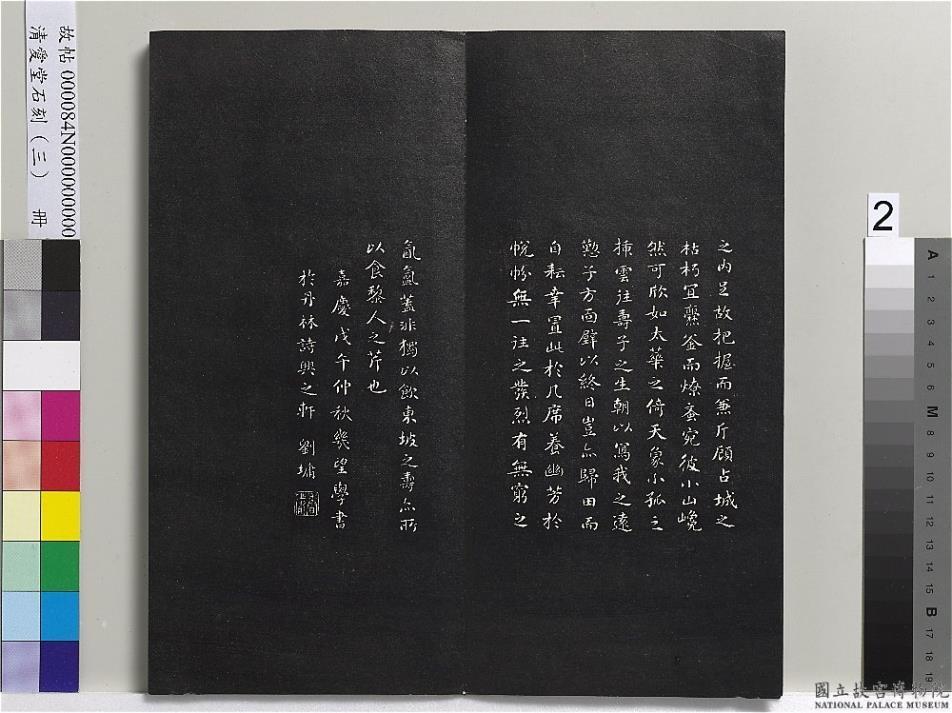 之内足故把握而兼斤顧占城之
枯朽宜爨釜而燎蚉宛彼小山巉
然可欣如太華之倚天象小孤之
揷雲往壽子之生朝以寫我之遠
懃子方面壁以終日豈亦歸田而
自耘幸置此於几席養幽芳於
帨帉無一往之發烈有無窮之
氤氳蓋非獨以飲東坡之壽亦所
以食黎人之芹也
嘉慶戊午仲秋幾望學書
於丹林詩興之軒 劉墉
故帖 000084N000000000
清愛堂石刻(三) 冊
2
A 1 2 3 4 5 6 M 8 9 10 11 12 13 14 15 B 17 18 19
國立故宮博物院
NATIONAL PALACE MUSEUM